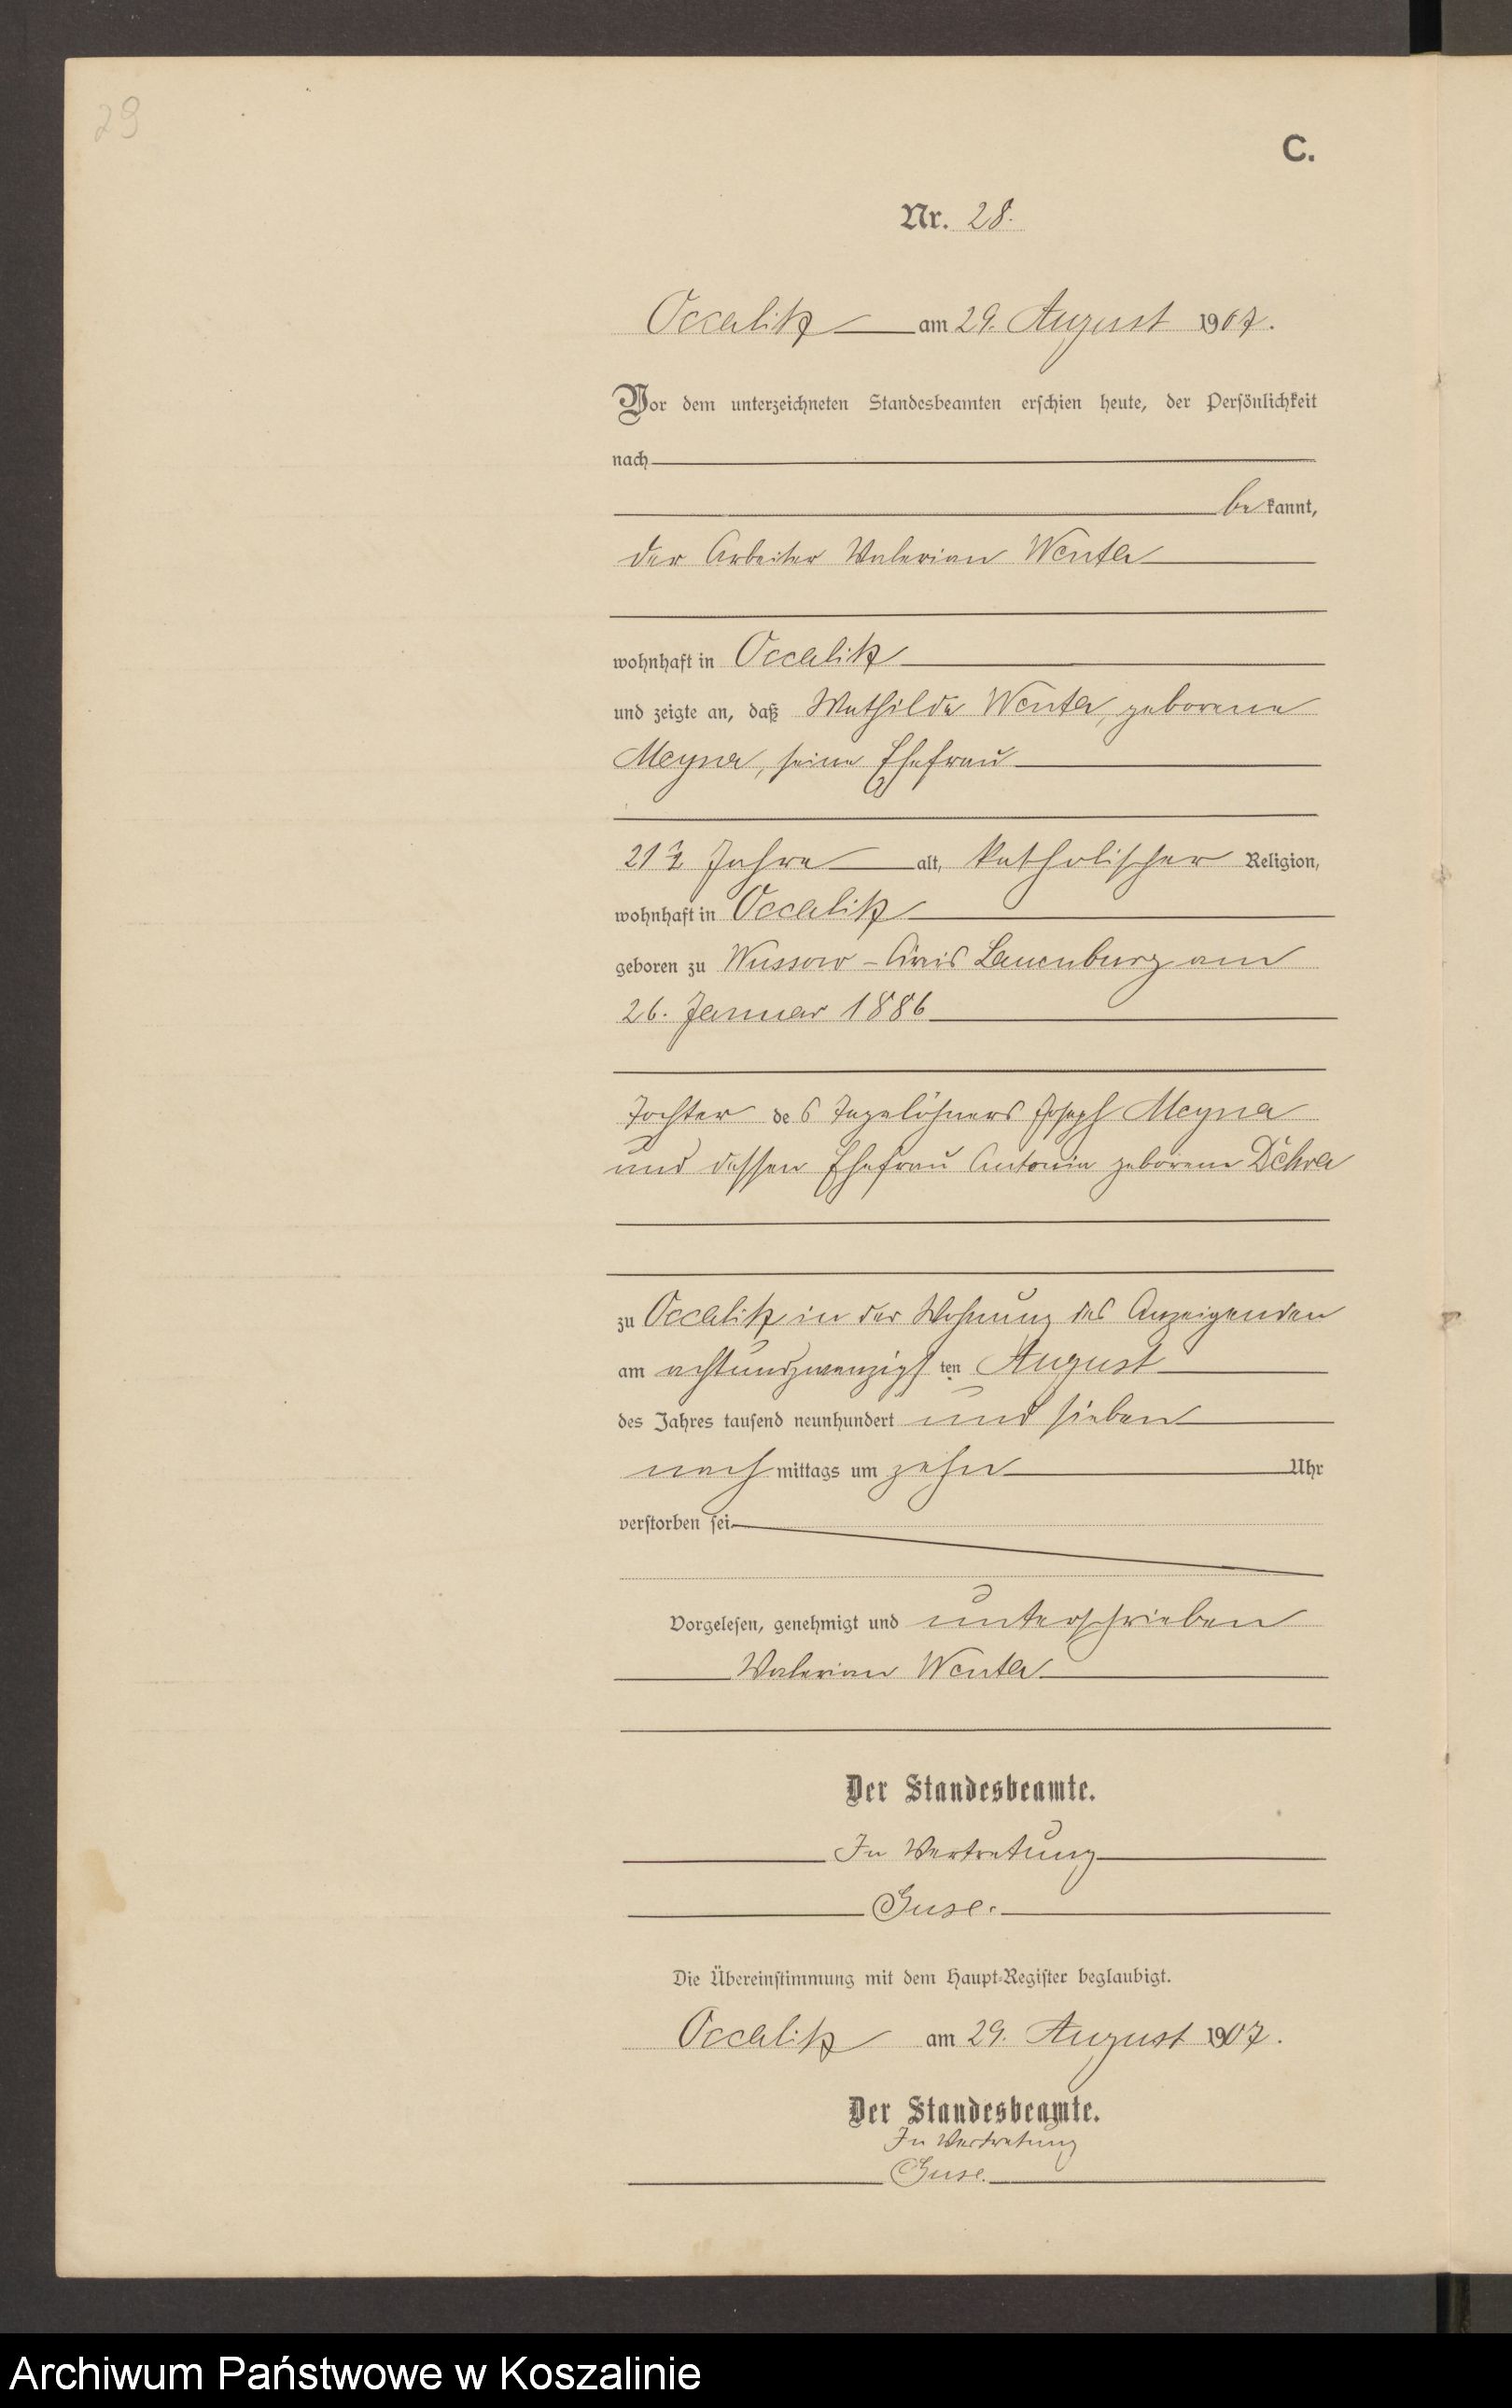 29
C.
Nr. 28.
Occalitz am 29. August 1907.
Vor dem unterzeichneten Standesbeamten erschien heute, der Persönlichkeit
nach
be kannt,
der Arbeiter Valerian Wenta
wohnhaft in Occalitz
und zeigte an, daß Mathilde Wenta, geborene
Meyna, seine Ehefrau
21½ Jahre alt, katholischer Religion,
wohnhaft in Occalitz
geboren zu Wussow - Kreis Lauenburg am
26. Januar 1886
Tochter des Tagelöhners Joseph Meyna
und dessen Ehefrau Antonie geborene
zu Occalitz in der Wohnung des Anzeigenden
am achtundzwanzigsten August
des Jahres tausend neunhundert und sieben
nach mittags um zehn Uhr
verstorben sei
Vorgelesen, genehmigt und unterschrieben
Valerian Wenta
Der Standesbeamte.
In Vertretung
Guse.
Die Übereinstimmung mit dem Haupt-Register beglaubigt.
Occalitz am 29. August 1907.
Der Standesbeamte.
In Vertretung
Guse.
Archiwum Państwowe w Koszalinie